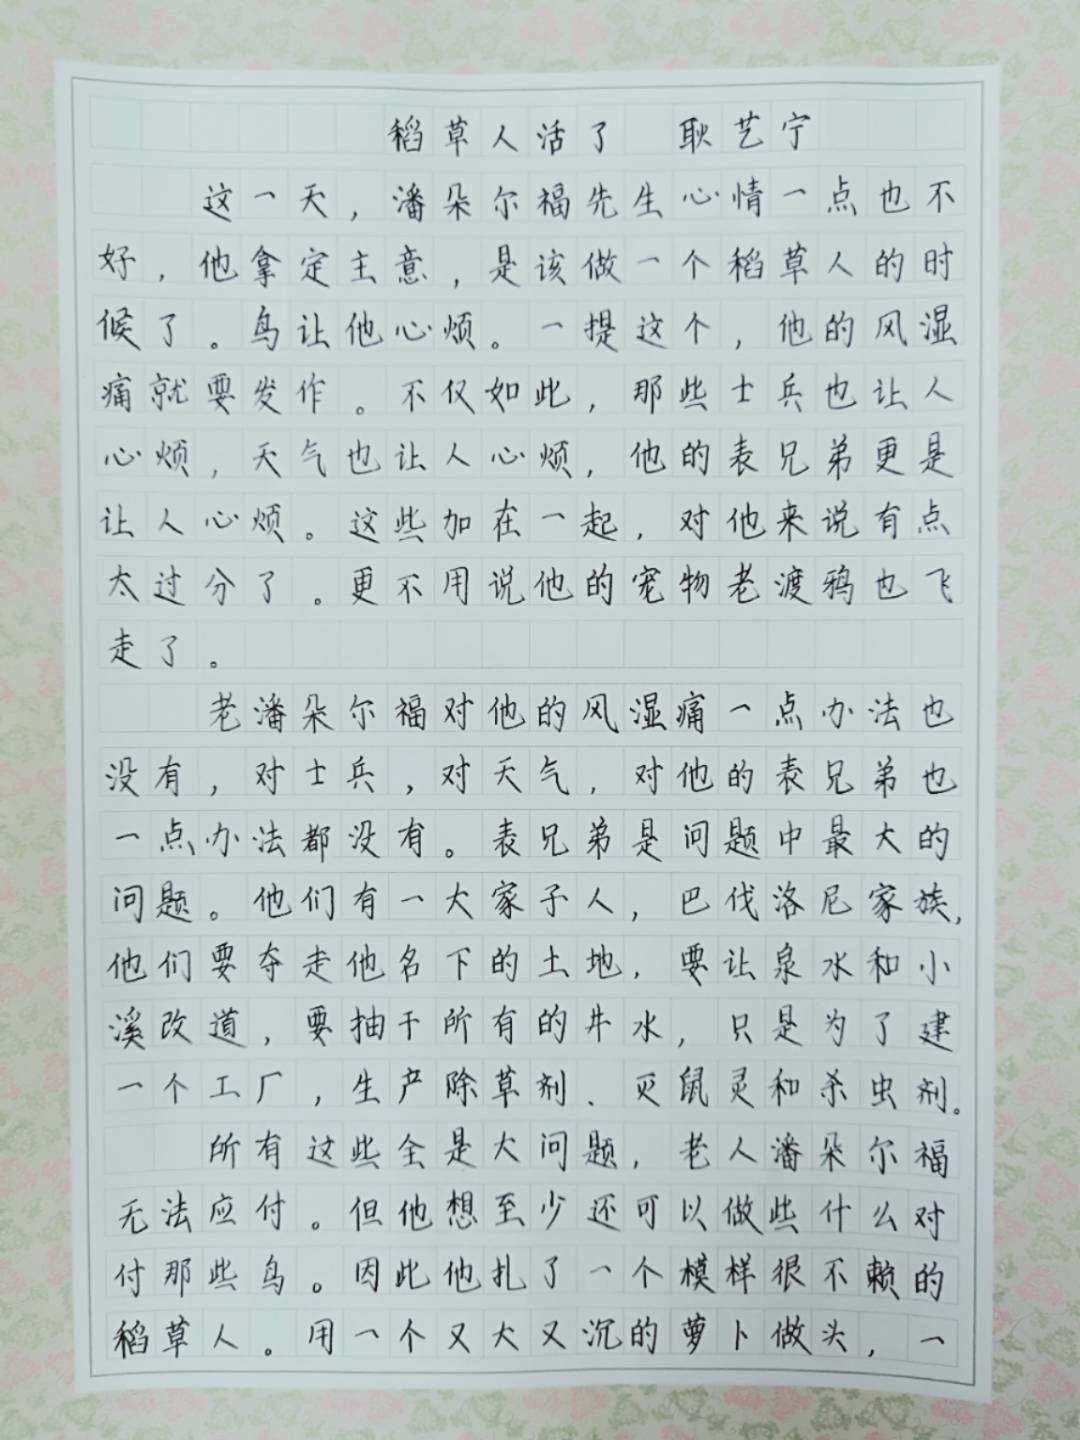 稻草人活了 耿艺宁
这一天，潘朵尔福先生心情一点也不
好，他拿定主意，是该做一个稻草人的时
候了。鸟让他心烦。一提这个，他的风湿
痛就要发作。不仅如此，那些士兵也让人
心烦，天气也让人心烦，他的表兄弟更是
让人心烦。这些加在一起，对他来说有点
太过分了。更不用说他的宠物老渡鸦也飞
走了。
老潘朵尔福对他的风湿痛一点办法也
没有，对士兵，对天气，对他的表兄弟也
一点办法都没有。表兄弟是问题中最大的
问题。他们有一大家子人，巴伐洛尼家族，
他们要夺走他名下的土地，要让泉水和小
溪改道，要抽干所有的井水，只是为了建
一个工厂，生产除草剂、灭鼠灵和杀虫剂。
所有这些全是大问题，老人潘朵尔福
无法应付。但他想至少还可以做些什么对
付那些鸟。因此他扎了一个模样很不赖的
稻草人。用一个又大又沉的萝卜做头，一